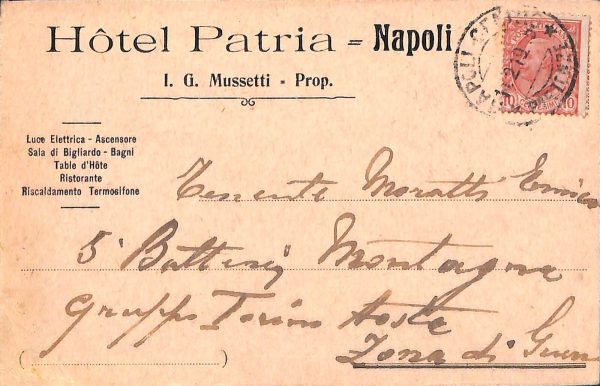 Hôtel Patria = Napoli
I. G. Mussetti - Prop.
Luce Elettrica - Ascensore
Sala di Bigliardo - Bagni
Table d'Hôte
Ristorante
Riscaldamento Termosifone
Tenente Moratti Enrico
5ª Batteria Montagna
Gruppo Torino Aosta
Zona di Guerra
NAPOLI
10 10